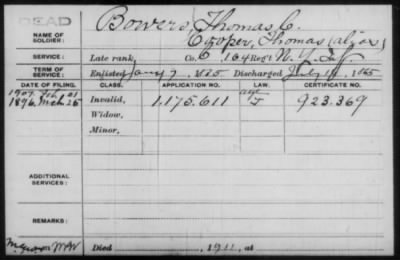 DEAD
Bowers, Thomas C.
NAME OF SOLDIER: Cooper, Thomas (alias)
SERVICE: Late rank, Co. 164 Reg't N.Y. Inf
TERM OF SERVICE: Enlisted Jany 7, 1865 Discharged July 1865
DATE OF FILING. CLASS. APPLICATION NO. LAW. CERTIFICATE NO.
1907 Feb 21 age
1896, Mch 25 Invalid, 1.175.611 923.369
Widow,
Minor,
ADDITIONAL SERVICES:
REMARKS:
Died , 1911, at